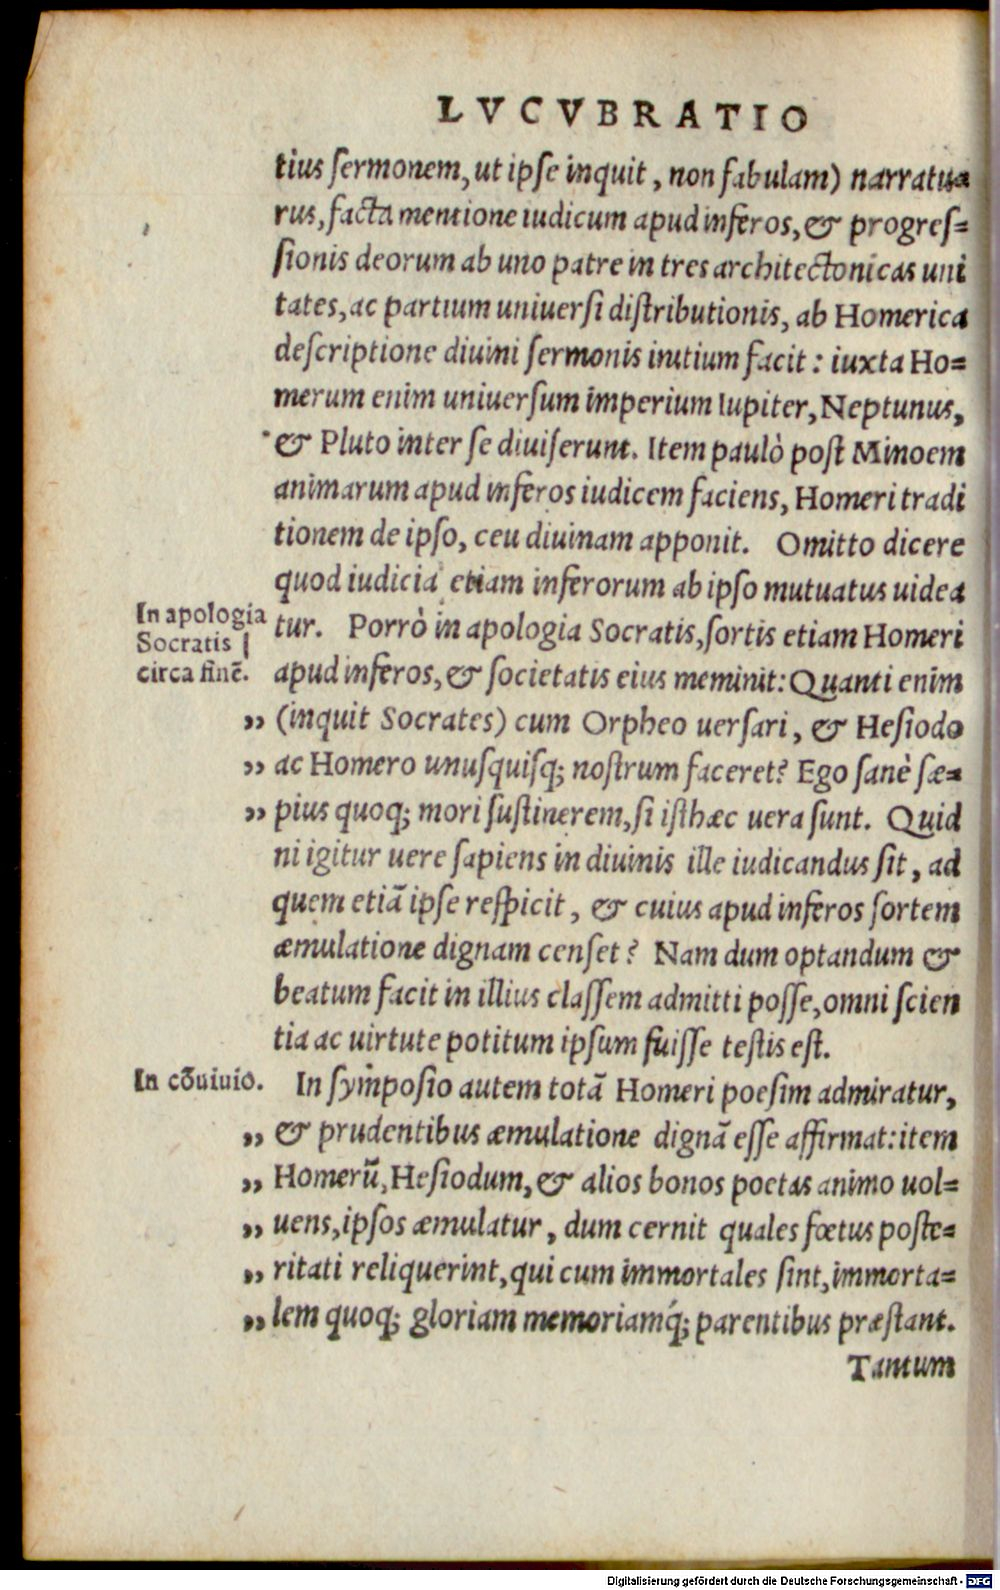 LVCVBRATIO
tius sermonem, ut ipse inquit, non fabulam) narratu=
rus, facta mentione iudicum apud inferos, & progres=
sionis deorum ab uno patre in tres architectonicas uni
tates, ac partium uniuersi distributionis, ab Homerica
descriptione diuini sermonis initium facit: iuxta Ho=
merum enim uniuersum imperium Iupiter, Neptunus,
& Pluto inter se diuiserunt. Item paulò post Minoem
animarum apud inferos iudicem faciens, Homeri tradi
tionem de ipso, ceu diuinam apponit. Omitto dicere
quod iudicia etiam inferorum ab ipso mutuatus uidea
In apologia
Socratis
circa finē.
tur. Porrò in apologia Socratis, sortis etiam Homeri
apud inferos, & societatis eius meminit: Quanti enim
„ (inquit Socrates) cum Orpheo uersari, & Hesiodo
„ ac Homero unusquisq; nostrum faceret? Ego sanè sæ=
„ pius quoq; mori sustinerem, si isthæc uera sunt. Quid
ni igitur uere sapiens in diuinis ille iudicandus sit, ad
quem etiã ipse respicit, & cuius apud inferos sortem
æmulatione dignam censet? Nam dum optandum &
beatum facit in illius classem admitti posse, omni scien
tia ac uirtute potitum ipsum fuisse testis est.
In cõuiuio.
In symposio autem totã Homeri poesim admiratur,
„ & prudentibus æmulatione dignã esse affirmat: item
„ Homerũ, Hesiodum, & alios bonos poetas animo uol=
„ uens, ipsos æmulatur, dum cernit quales fœtus poste=
„ ritati reliquerint, qui cum immortales sint, immorta=
„ lem quoq; gloriam memoriamq́; parentibus præstant.
Tantum
Digitalisierung gefördert durch die Deutsche Forschungsgemeinschaft - DFG